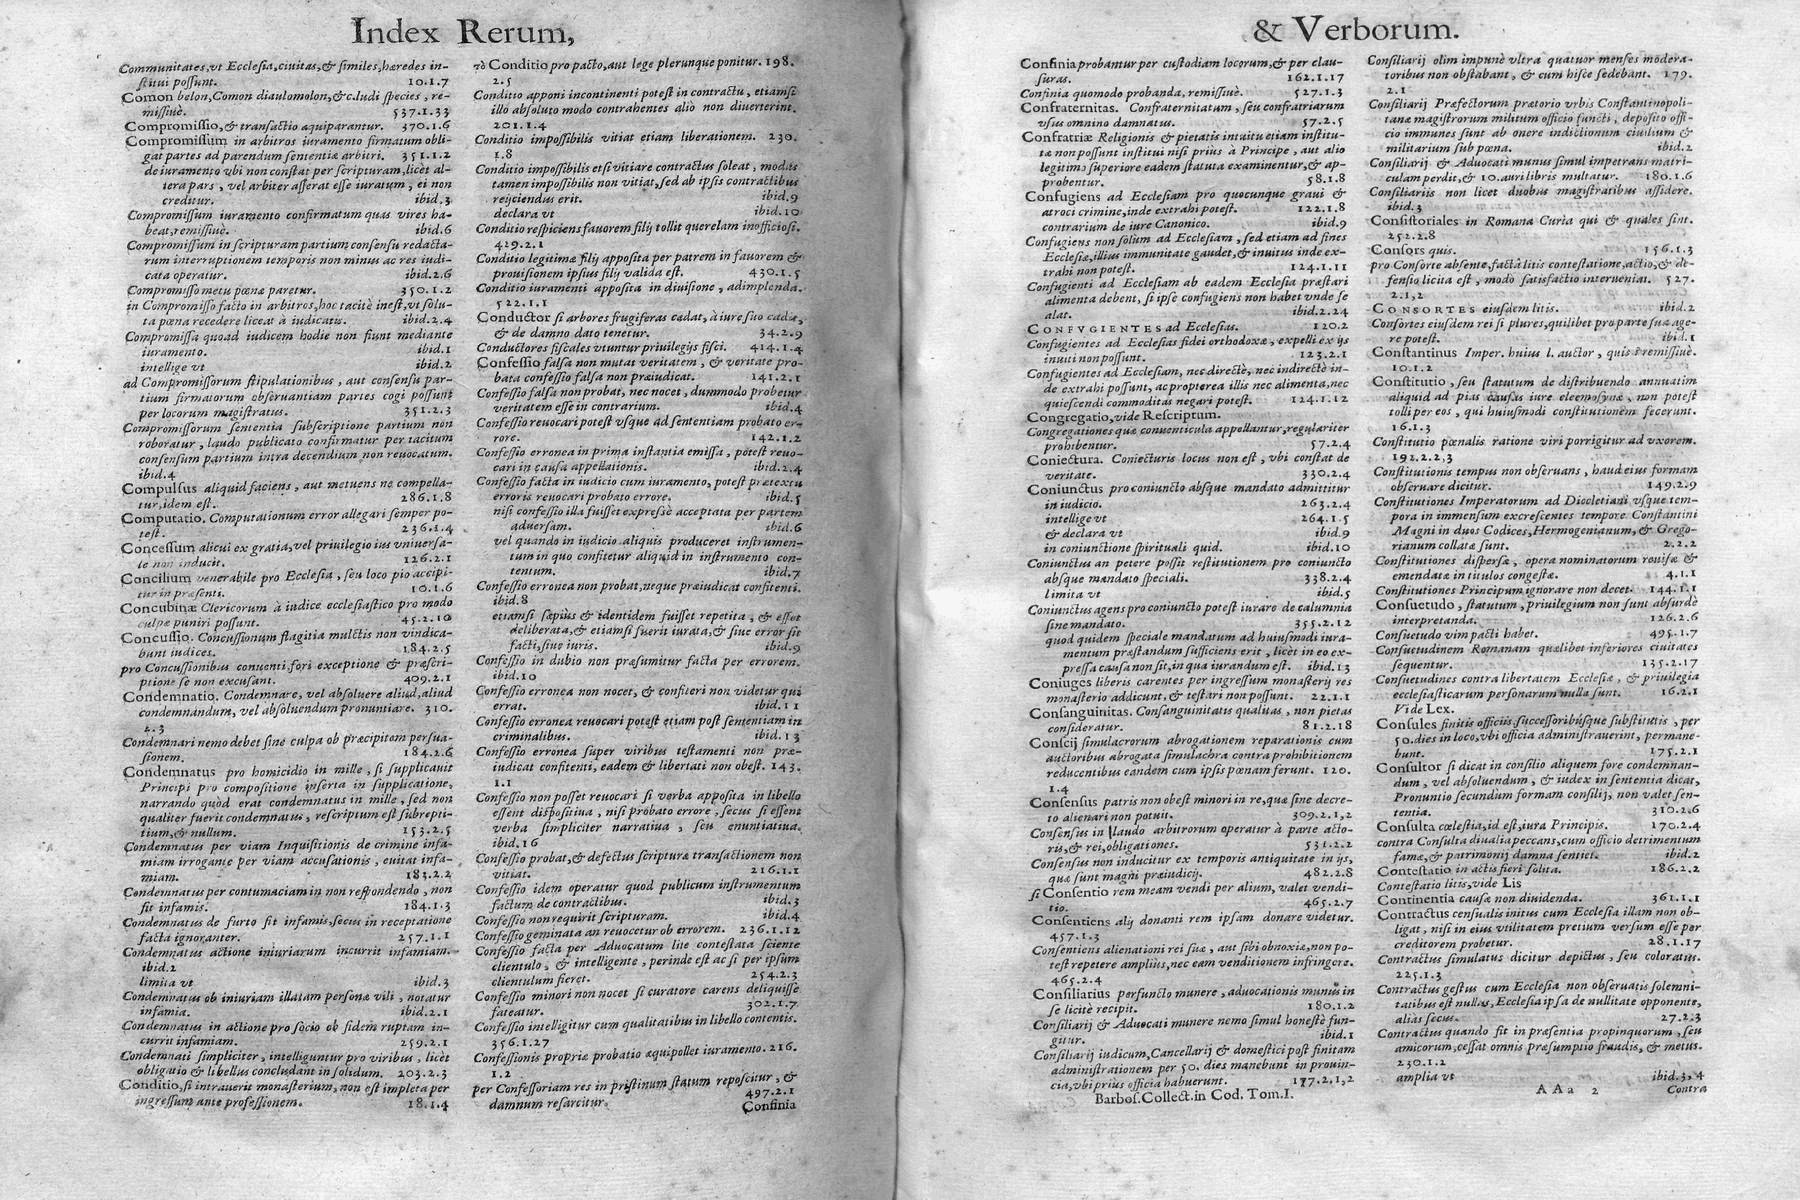 Index Rerum,
Communitates, vt Ecclesia, ciuitas, & similes, hæredes in-
stitui possunt. 10.1.7
Comon belon, Comon diaulomolon, &c. ludi species, re-
missiuè. 537.1.33
Compromissio, & transactio æquiparantur. 370.1.6
Compromissum in arbitros iuramento firmatum obli-
gat partes ad parendum sententiæ arbitri. 351.1.2
de iuramento vbi non constat per scripturam, licèt al-
tera pars, vel arbiter asserat esse iuratum, ei non
creditur. ibid.3
Compromissum iuramento confirmatum quas vires ha-
beat, remissiuè. ibid.6
Compromissum in scripturam partium consensu redacta-
rum interruptionem temporis non minus ac res iudi-
cata operatur. ibid.2.6
Compromisso metus pœnæ paretur. 350.1.2
in Compromisso facto in arbitros, hoc tacitè inest, vt solu-
ta pœna recedere liceat à iudicatis. ibid.2.4
Compromissa quoad iudicem hodie non fiunt mediante
iuramento. ibid.1
intellige vt ibid.2
ad Compromissorum stipulationibus, aut consensu par-
tium firmatorum obseruantiam partes cogi possunt
per locorum magistratus. 351.2.3
Compromissorum sententia subscriptione partium non
roboratur, laudo publicato confirmatur per tacitum
consensum partium intra decendium non reuocatum.
ibid.4
Compulsus aliquid faciens, aut metuens ne compella-
tur, idem est. 286.1.8
Computatio. Computationum error allegari semper po-
test. 236.1.4
Concessum alicui ex gratia, vel priuilegio ius vniuersa-
le non inducit. 126.2.1
Concilium venerabile pro Ecclesia, seu loco pio accipi-
tur in præsenti. 10.1.6
Concubinæ Clericorum à iudice ecclesiastico pro modo
culpæ puniri possunt. 45.2.10
Concussio. Concussionum flagitia mulctis non vindica-
bunt iudices. 184.2.5
pro Concussionibus conuenti fori exceptione & præscri-
ptione se non excusant. 409.2.1
Condemnatio. Condemnare, vel absoluere aliud, aliud
condemnandum, vel absoluendum pronuntiare. 310.
2.3
Condemnari nemo debet sine culpa ob præcipitem persua-
sionem. 184.2.6
Condemnatus pro homicidio in mille, si supplicauit
Principi pro compositione inserta in supplicatione,
narrando quòd erat condemnatus in mille, sed non
qualiter fuerit condemnatus, rescriptum est subrepti-
tium, & nullum. 153.2.5
Condemnatus per viam Inquisitionis de crimine infa-
miam irrogante per viam accusationis, euitat infa-
miam. 183.2.2
Condemnatus per contumaciam in non respondendo, non
fit infamis. 184.1.3
Condemnatus de furto fit infamis, secus in receptatione
facta ignoranter. 257.1.1
Condemnatus actione iniuriarum incurrit infamiam.
ibid.2
limita vt ibid.3
Condemnatus ob iniuriam illatam personæ vili, notatur
infamia. ibid.2.1
Condemnatus in actione pro socio ob fidem ruptam in-
currit infamiam. 259.2.1
Condemnati simpliciter, intelliguntur pro viribus, licèt
obligatio & libellus concludant in solidum. 203.2.3
Conditio, si intrauerit monasterium, non est impleta per
ingressum ante professionem. 18.1.4
τὸ Conditio pro pacto, aut lege plerunque ponitur. 198.
2.5
Conditio apponi incontinenti potest in contractu, etiamsi
illo absoluto modo contrahentes aliò non diuerterint.
201.1.4
Conditio impossibilis vitiat etiam liberationem. 230.
1.8
Conditio impossibilis etsi vitiare contractus soleat, modus
tamen impossibilis non vitiat, sed ab ipsis contractibus
reijciendus erit. ibid.9
declara vt ibid.10
Conditio respiciens fauorem filij tollit querelam inofficiosi.
429.2.1
Conditio legitimæ filij apposita per patrem in fauorem &
prouisionem ipsius filij valida est. 430.1.5
Conditio iuramenti apposita in diuisione, adimplenda.
522.1.1
Conductor si arbores frugiferas cædat, à iure suo cadit,
& de damno dato tenetur. 34.2.9
Conductores fiscales vtuntur priuilegijs fisci. 414.1.4
Confessio falsa non mutat veritatem, & veritate pro-
bata confessio falsa non præiudicat. 141.2.1
Confessio falsa non probat, nec nocet, dummodo probetur
veritatem esse in contrarium. ibid.4
Confessio reuocari potest vsque ad sententiam probato er-
rore. 142.1.2
Confessio erronea in prima instantia emissa, potest reuo-
cari in causa appellationis. ibid.2.4
Confessio facta in iudicio cum iuramento, potest prætextu
erroris reuocari probato errore. ibid.5
nisi confessio illa fuisset expressè acceptata per partem
aduersam. ibid.6
vel quando in iudicio aliquis produceret instrumen-
tum in quo confitetur aliquid in instrumento con-
tentum. ibid.7
Confessio erronea non probat, neque præiudicat confitenti.
ibid.8
etiamsi sæpiùs & identidem fuisset repetita, & esset
deliberata, & etiamsi fuerit iurata, & siue error sit
facti, siue iuris. ibid.9
Confessio in dubio non præsumitur facta per errorem.
ibid.10
Confessio erronea non nocet, & confiteri non videtur qui
errat. ibid.11
Confessio erronea reuocari potest etiam post sententiam in
criminalibus. ibid.13
Confessio erronea super viribus testamenti non præ-
iudicat confitenti, eadem & libertati non obest. 143.
1.1
Confessio non posset reuocari si verba apposita in libello
essent dispositiua, nisi probato errore, secus si essent
verba simpliciter narratiua, seu enuntiatiua.
ibid.16
Confessio probat, & defectus scripturæ transactionem non
vitiat. 216.1.1
Confessio idem operatur quod publicum instrumentum
factum de contractibus. ibid.3
Confessio non requirit scripturam. ibid.4
Confessio geminata an reuocetur ob errorem. 236.1.12
Confessio facta per Aduocatum lite contestata sciente
clientulo, & intelligente, perinde est ac si per ipsum
clientulum fieret. 254.2.3
Confessio minori non nocet si curatore carens deliquisse
fateatur. 302.1.7
Confessio intelligitur cum qualitatibus in libello contentis.
356.1.27
Confessionis propriæ probatio æquipollet iuramento. 216.
1.2
per Confessoriam res in pristinum statum reposcitur, &
damnum resarcitur. 497.2.1
Confinia
& Verborum.
Confinia probantur per custodiam locorum, & per clau-
suras. 162.1.17
Confinia quomodo probanda, remissiuè. 527.1.3
Confraternitas. Confraternitatum, seu confratriarum
vsus omnino damnatus. 57.2.5
Confratriæ Religionis & pietatis intuitu etiam institu-
tæ non possunt institui nisi prius à Principe, aut alio
legitimo superiore eadem statuta examinentur, & ap-
probentur. 58.1.8
Confugiens ad Ecclesiam pro quocunque graui &
atroci crimine, inde extrahi potest. 122.1.8
contrarium de iure Canonico. ibid.9
Confugiens non solùm ad Ecclesiam, sed etiam ad fines
Ecclesiæ, illius immunitate gaudet, & inuitus inde ex-
trahi non potest. 124.1.11
Confugienti ad Ecclesiam ab eadem Ecclesia præstari
alimenta debent, si ipse confugiens non habet vnde se
alat. ibid.2.24
CONFVGIENTES ad Ecclesias. 120.2
Confugientes ad Ecclesias fidei orthodoxæ, expelli ex ijs
inuiti non possunt. 123.2.1
Confugientes ad Ecclesiam, nec directè, nec indirectè in-
de extrahi possunt, ac propterea illis nec alimenta, nec
quiescendi commoditas negari potest. 124.1.12
Congregatio, vide Rescriptum.
Congregationes quæ conuenticula appellantur, regulariter
prohibentur. 57.2.4
Coniectura. Coniecturis locus non est, vbi constat de
veritate. 330.2.4
Coniunctus pro coniuncto absque mandato admittitur
in iudicio. 263.2.4
intellige vt 264.1.5
& declara vt ibid.9
in coniunctione spirituali quid. ibid.10
Coniunctus an petere possit restitutionem pro coniuncto
absque mandato speciali. 338.2.4
limita vt ibid.5
Coniunctus agens pro coniuncto potest iurare de calumnia
sine mandato. 355.2.12
quod quidem speciale mandatum ad huiusmodi iura-
mentum præstandum sufficiens erit, licèt in eo ex-
pressa causa non sit, in qua iurandum est. ibid.13
Coniuges liberis carentes per ingressum monasterij res
monasterio addicunt, & testari non possunt. 22.1.1
Consanguinitas. Consanguinitatis qualitas, non pietas
consideratur. 81.2.18
Conscij simulacrorum abrogationem reparationis cum
auctoribus abrogata simulachra contra prohibitionem
reducentibus eandem cum ipsis pœnam ferunt. 120.
1.4
Consensus patris non obest minori in re, quæ sine decre-
to alienari non potuit. 309.2.1,2
Consensus in laudo arbitrorum operatur à parte acto-
ris, & rei, obligationes. 531.2.2
Consensus non inducitur ex temporis antiquitate in ijs,
quæ sunt magni præiudicij. 482.2.8
si Consentio rem meam vendi per alium, valet vendi-
tio. 465.2.7
Consentiens alij donanti rem ipsam donare videtur.
457.1.3
Consentiens alienationi rei suæ, aut sibi obnoxiæ, non po-
test repetere ampliùs, nec eam venditionem infringere.
465.2.4
Consiliarius perfuncto munere, aduocationis munus in
se licitè recipit. 180.1.2
Consiliarij & Aduocati munere nemo simul honestè fun-
gitur. ibid.1
Consiliarij iudicum, Cancellarij & domestici post finitam
administrationem per 50. dies manebunt in prouin-
cia, vbi priùs officia habuerunt. 177.2.1,2
Barbos. Collect. in Cod. Tom. I.
Consiliarij olim impunè vltra quatuor menses modera-
toribus non obstabant, & cum hisce sedebant. 179.
2.1
Consiliarij Præfectorum prætorio vrbis Constantinopoli-
tanæ magistrorum militum officio functi, deposito offi-
cio immunes sunt ab onere indictionum ciuilium &
militarium sub pœna. ibid.2
Consiliarij & Aduocati munus simul impetrans matri-
culam perdit, & 10. auri libris multatur. 180.1.6
Consiliarijs non licet duobus magistratibus assidere.
ibid.3
Consistoriales in Romana Curia qui & quales sint.
252.2.8
Consors quis. 156.1.3
pro Consorte absente, facta litis contestatione, actio, & de-
fensio licita est, modo satisfactio interueniat. 527.
2.1,2
CONSORTES eiusdem litis. ibid.2
Consortes eiusdem rei si plures, quilibet pro parte sua age-
re potest. ibid.1
Constantinus Imper. huius l. auctor, quis remissiuè.
10.1.2
Constitutio, seu statutum de distribuendo annuatim
aliquid ad pias causas iure eleemosynæ, non potest
tolli per eos, qui huiusmodi constitutionem fecerunt.
16.1.3
Constitutio pœnalis ratione viri porrigitur ad vxorem.
192.2.2,3
Constitutionis tempus non obseruans, haud eius formam
obseruare dicitur. 149.2.9
Constitutiones Imperatorum ad Diocletiani vsque tem-
pora in immensum excrescentes tempore Constantini
Magni in duos Codices, Hermogenianum, & Grego-
rianum collatæ sunt. 2.2.2
Constitutiones dispersæ, opera nominatorum reuisæ &
emendatæ in titulos congestæ. 4.1.1
Constitutiones Principum ignorare non decet. 144.1.1
Consuetudo, statutum, priuilegium non sunt absurdè
interpretanda. 126.2.6
Consuetudo vim pacti habet. 495.1.7
Consuetudinem Romanam quælibet inferiores ciuitates
sequentur. 135.2.17
Consuetudines contra libertatem Ecclesiæ, & priuilegia
ecclesiasticarum personarum nulla sunt. 16.2.1
Vide Lex.
Consules finitis officiis successoribúsque substitutis, per
50. dies in loco, vbi officia administrauerint, permane-
bunt. 175.2.1
Consultor si dicat in consilio aliquem fore condemnan-
dum, vel absoluendum, & iudex in sententia dicat,
Pronuntio secundum formam consilij, non valet sen-
tentia. 310.2.6
Consulta cœlestia, id est, iura Principis. 170.2.4
contra Consulta diualia peccans, cum officio detrimentum
famæ, & patrimonij damna sentiet. ibid.2
Contestatio in actis fieri solita. 186.2.2
Contestatio litis, vide Lis
Continentia causæ non diuidenda. 361.1.1
Contractus censualis initus cum Ecclesia illam non ob-
ligat, nisi in eius vtilitatem pretium versum esse per
creditorem probetur. 28.1.17
Contractus simulatus dicitur depictus, seu coloratus.
225.1.3
Contractus gestus cum Ecclesia non obseruatis solemni-
tatibus est nullus, Ecclesia ipsa de nullitate opponente,
aliàs secus. 27.2.3
Contractus quando fit in præsentia propinquorum, seu
amicorum, cessat omnis præsumptio fraudis, & metus.
230.1.2
amplia vt ibid.3,4
AAa 2 Contra